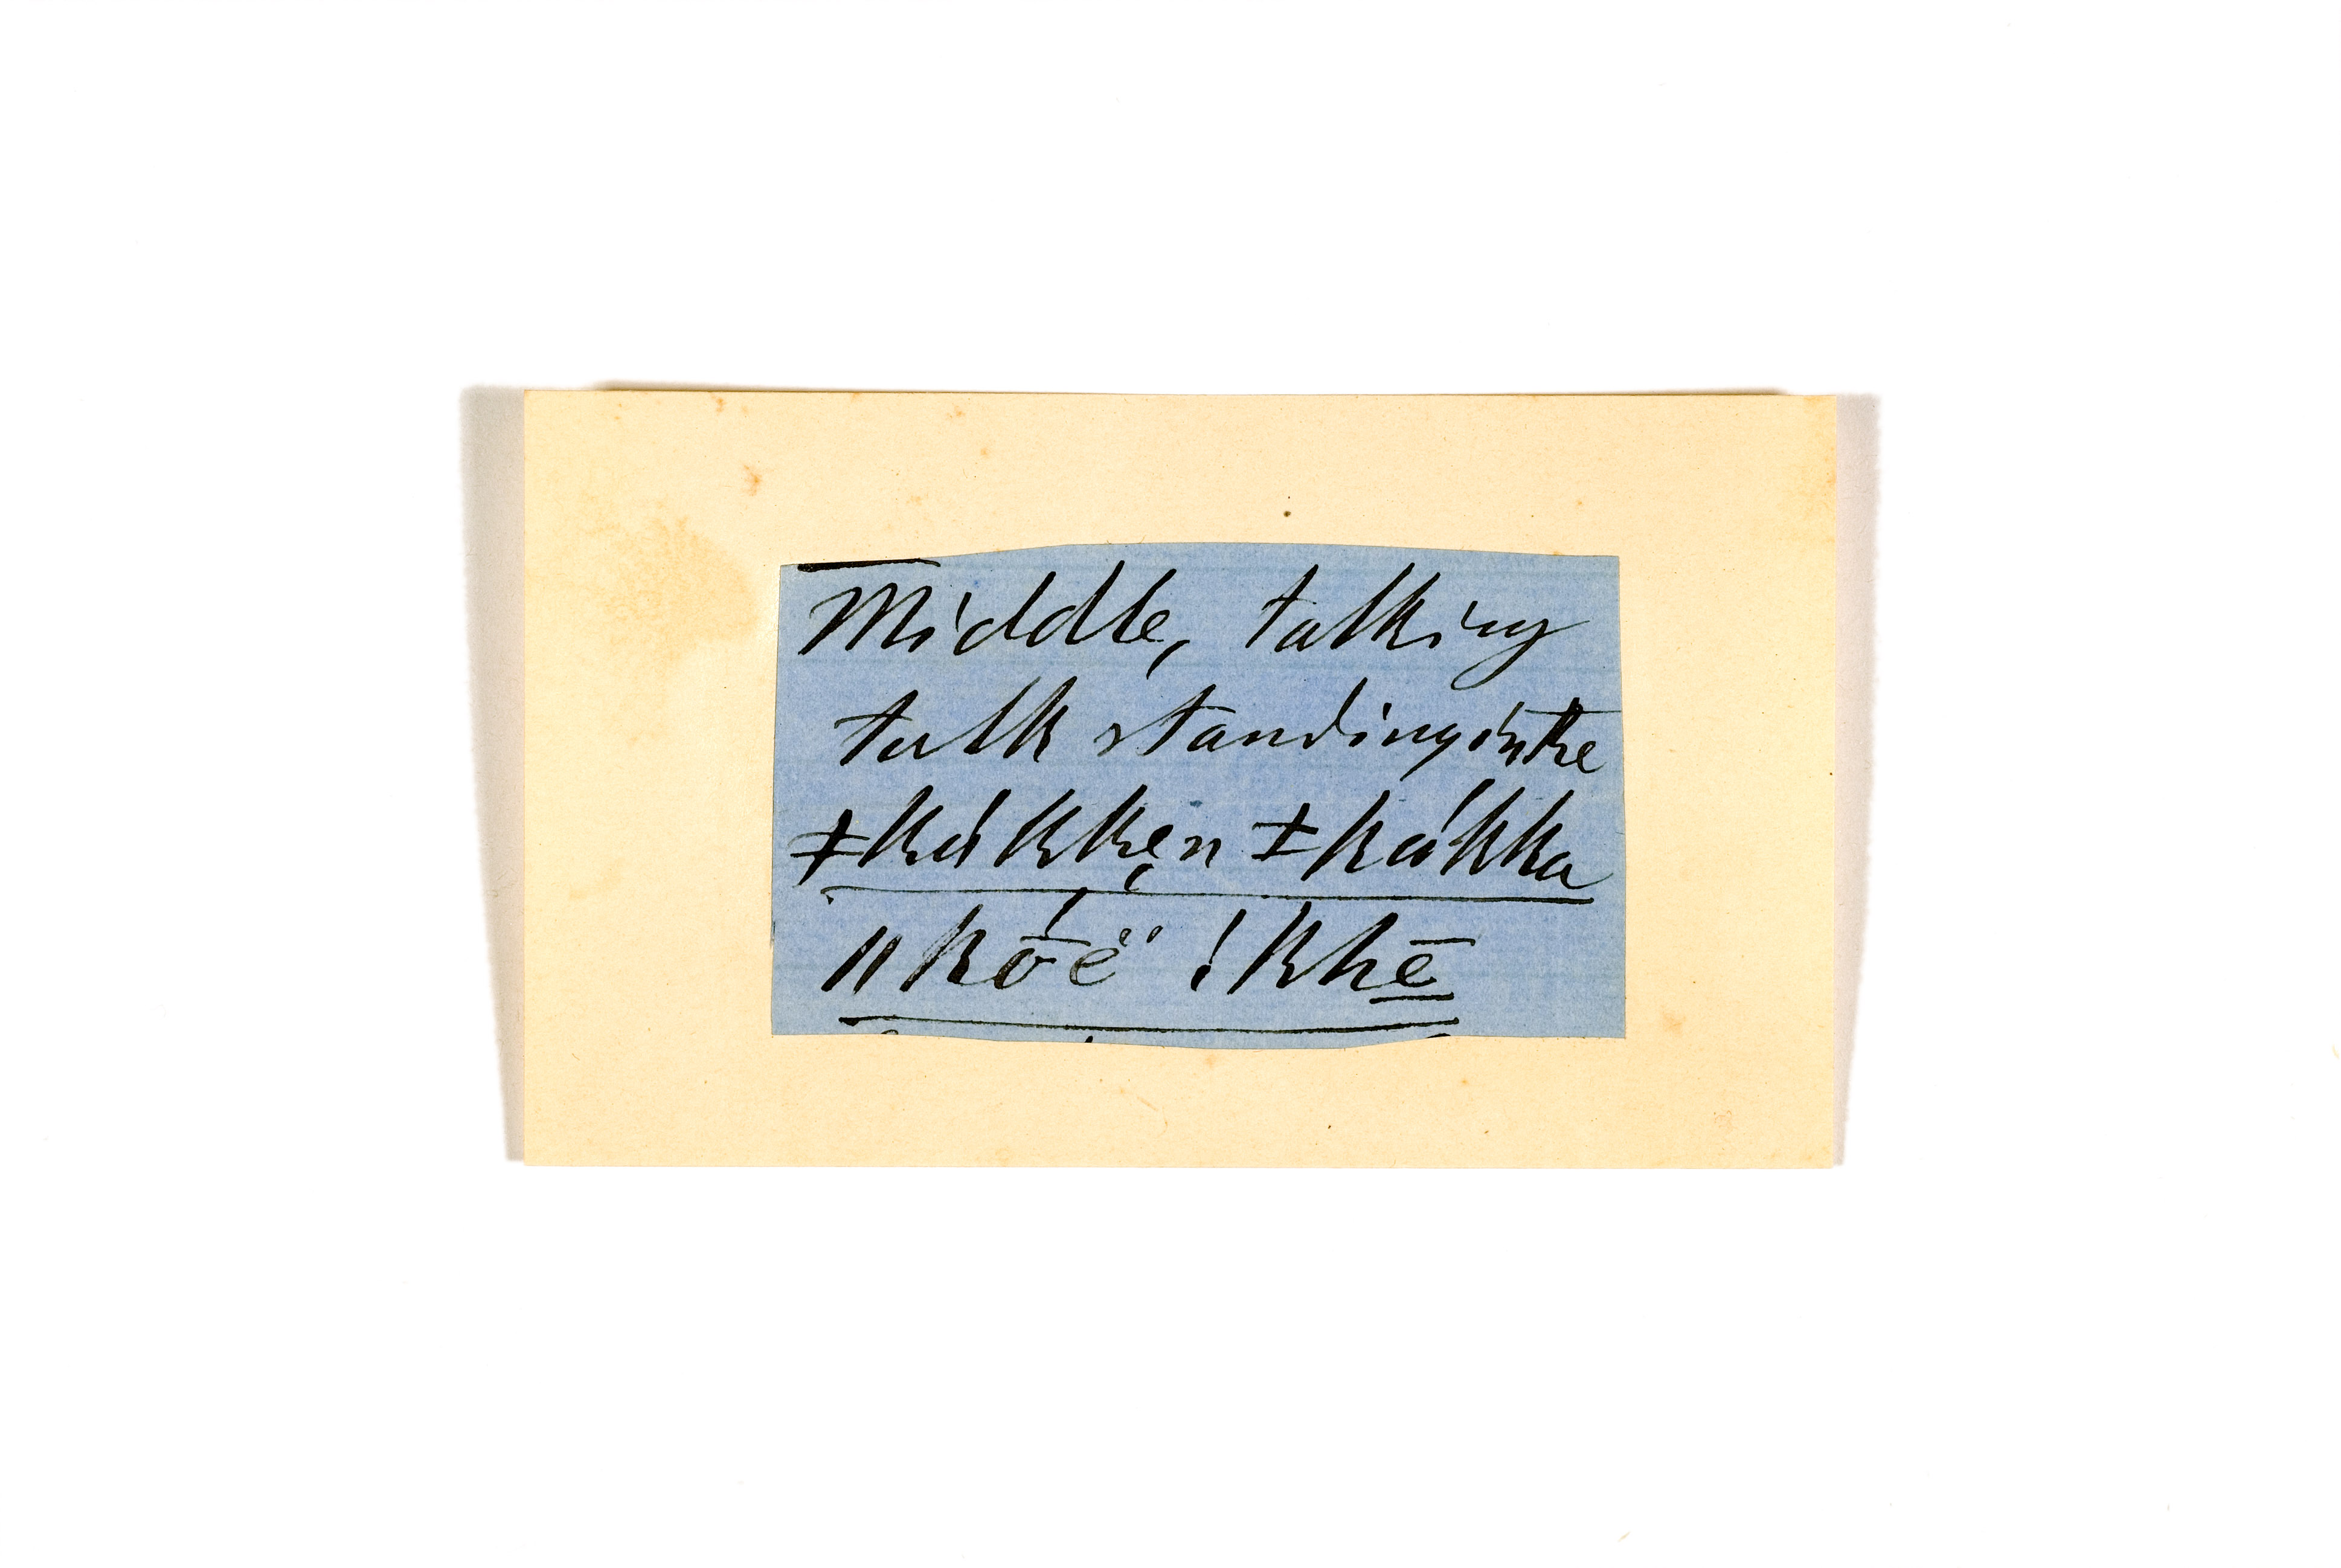 Middle, talking
talk standing in the
ǂkákkẹn ǂkákka
ǁkṓë ǃkhē̱